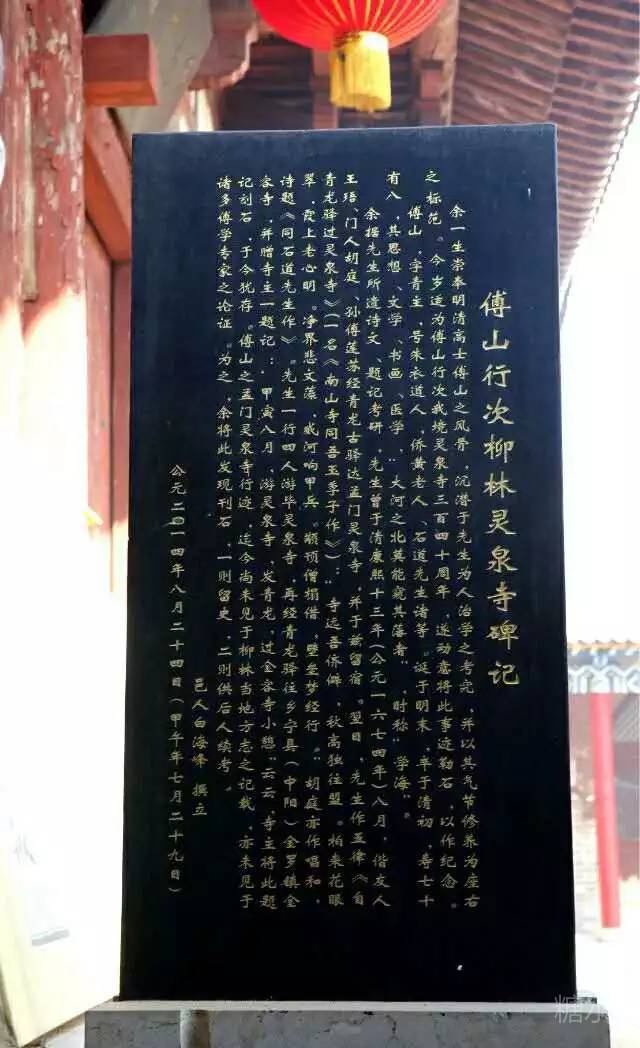 傅山行次柳林灵泉寺碑记
余一生崇奉明清高士傅山之风骨，沉潜于先生为人治学之考究，并以其气节修养为座右
之标范。今岁适为傅山行次我境灵泉寺三百四十周年，遂动意将此事迹勒石，以作纪念。
傅山，字青主，号朱衣道人，侨黄老人、石道先生诸等。诞于明末，卒于清初，寿七十
有八，其思想、文学、书画、医学，“大河之北莫能窥其藩者”，时称“学海”。
余据先生所遗诗文、题记考研，先生曾于清康熙十三年(公元一六七四年)八月，偕友人
王珸、门人胡庭、孙傅莲苏经青龙古驿达孟门灵泉寺，并于兹留宿。翌日，先生作五律《自
青龙驿过灵泉寺》(一名《南山寺同吾玉季子作》)：“寺远吾侨僻，秋高独往盟。柏来花眼
翠，霞上老心明。净界悲文藻，戒河响甲兵。颟顸僧榻借，壁垒梦经行。”胡庭亦作唱和，
诗题《同石道先生作》。先生一行四人游毕灵泉寺，再经青龙驿往乡宁县(中阳)金罗镇金
容寺，并赠寺主一题记：“甲寅八月，游灵泉寺，发青龙，过金容寺小憩”云云，寺主将此题
记刻石，于今犹存。傅山之孟门灵泉寺行迹，迄今尚未见于柳林当地方志之记载，亦未见于
诸多傅学专家之论证。为之，余将此发现刊石，一则留史，二则供后人续考。
邑人白海峰 撰立
公元二〇一四年八月二十四日(甲午年七月二十九日)
糖水